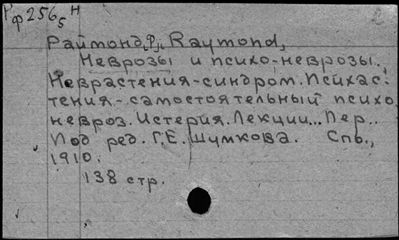 Рф 256 5 Н
Раймонд, Р., Raymond,
Неврозы и психо-неврозы.
Неврастения-синдром. Психас-
тения-самостоятельный психо
невроз. Истерия. Лекции... Пер..
Под ред. Г.Е. Шумкова. Спб.,
1910.
138 стр.